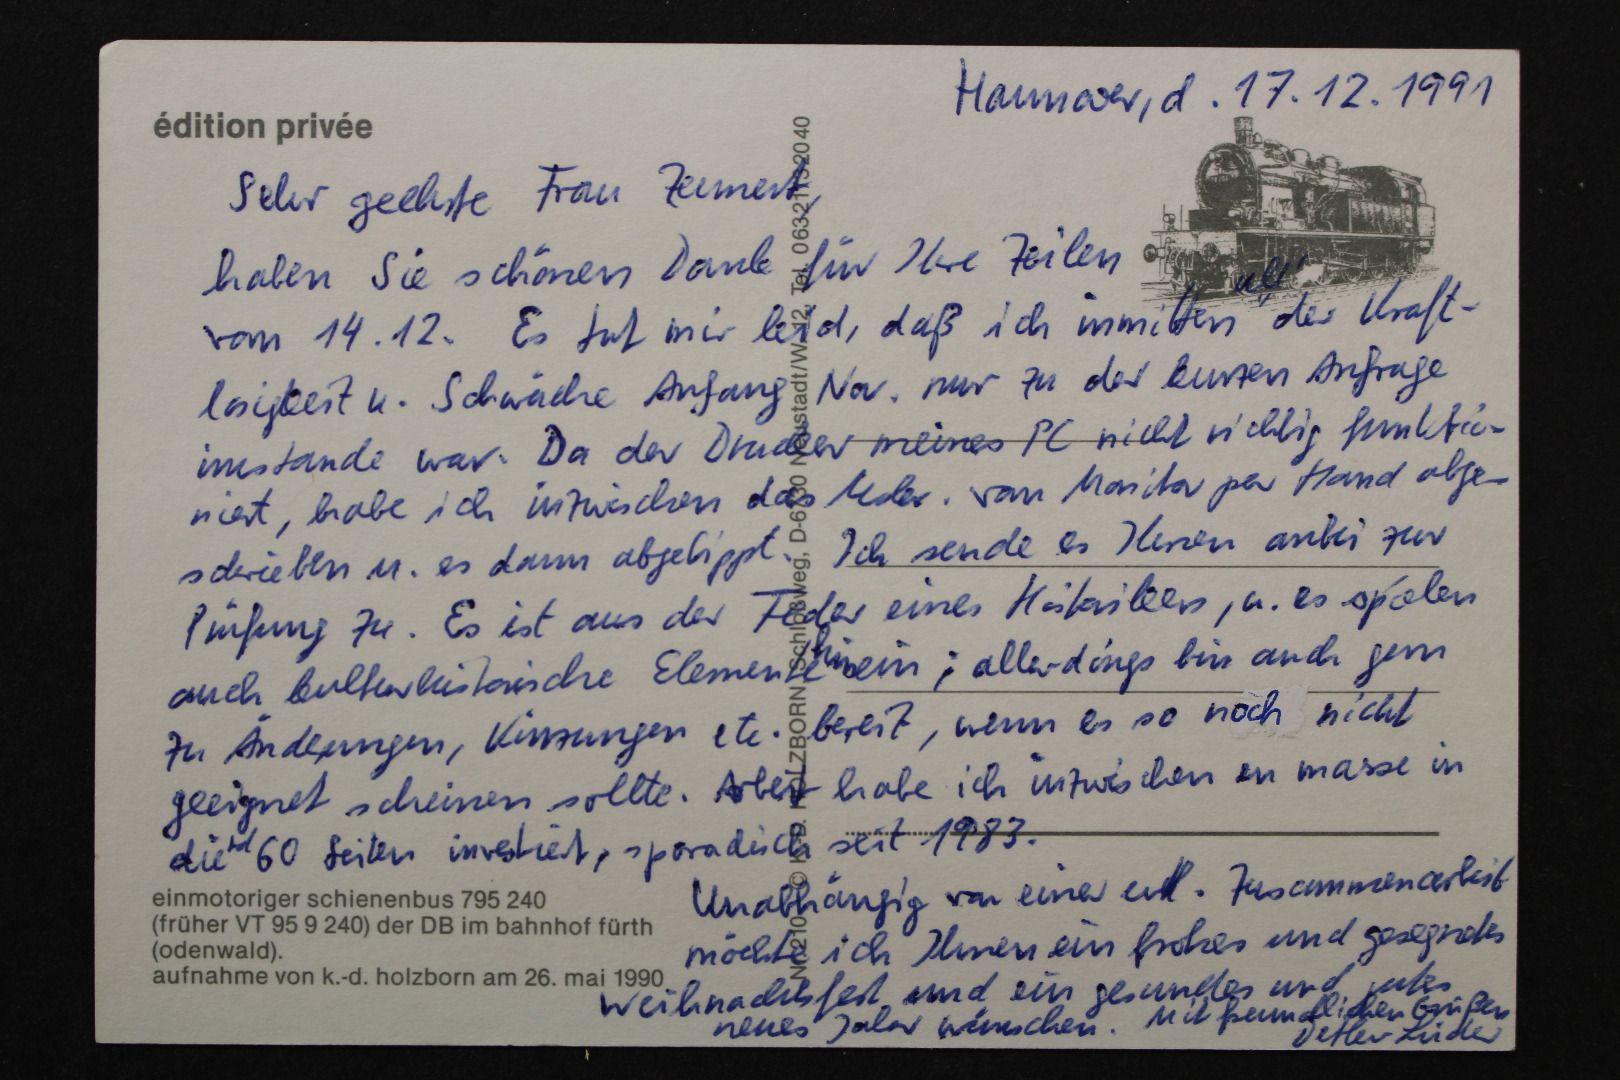 Hannover, d. 17.12.1991
édition privée
Sehr geehrte Frau
haben Sie schönen Dank für Ihre Zeilen
vom 14.12. Es tut mir leid, daß ich inmitten "all" der Kraft-
losigkeit u. Schwäche Anfang Nov. nur zu der kurzen Anfrage
imstande war. Da der Drucker meines PC nicht richtig funktio-
niert, habe ich inzwischen das Mskr. vom Monitor per Hand abge-
schrieben u. es dann abgetippt. Ich sende es Ihnen anbei zur
Prüfung zu. Es ist aus der Feder eines Historikers, u. es spielen
auch kulturhistorische Elemente hinein; allerdings bin auch gern
zu Änderungen, Kürzungen etc. bereit, wenn es so noch nicht
geeignet scheinen sollte. Arbeit habe ich inzwischen en masse in
die 60 Seiten investiert, sporadisch seit 1983.
Unabhängig von einer evtl. Zusammenarbeit
möchte ich Ihnen ein frohes und gesegnetes
Weihnachtsfest und ein gesundes und gutes
neues Jahr wünschen. Mit freundlichen Grüßen
Detlev
einmotoriger schienenbus 795 240
(früher VT 95 9 240) der DB im bahnhof fürth
(odenwald).
aufnahme von k.-d. holzborn am 26. mai 1990
Nr. 210 © K.-D. HOLZBORN, Schloßweg, D-6730 Neustadt/W. 12, Tel. 06321/32040